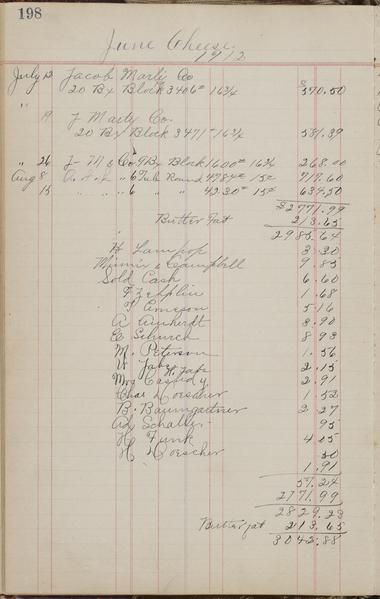 198
June Cheese
1912
July 12 Jacob Marti Co
20 Bx Block 3406# 16¾ $570.50
" 19 J Marty Co.
20 Bx Block 3471# 16¾ 581.39
" 26 J- M & Co 9 Bx Block 1600# 16¾ 268.00
Aug 8 " " 6 Tub Round 4784# 15¢ 717.60
15 " " 6 " " 4230# 15¢ 634.50
$2771.99
Butter Fat 213.65
2985.64
H Lampop 3.30
Minnie Campbell 9.85
Sold Cash 6.60
1.68
T Emerson 5.16
A Aynherdt 3.90
E Schurch 8.93
M. Peterson 1.56
W Jahs H. Jahs 2.15
Mrs Cassidy 2.91
Chas Loescher 1.52
B. Baumgartner 2.27
Ad Schaller 95
H Funk 4.05
H Loescher 50
1.91
57.24
2771.99
2829.23
Butter fat 213.65
3042.88